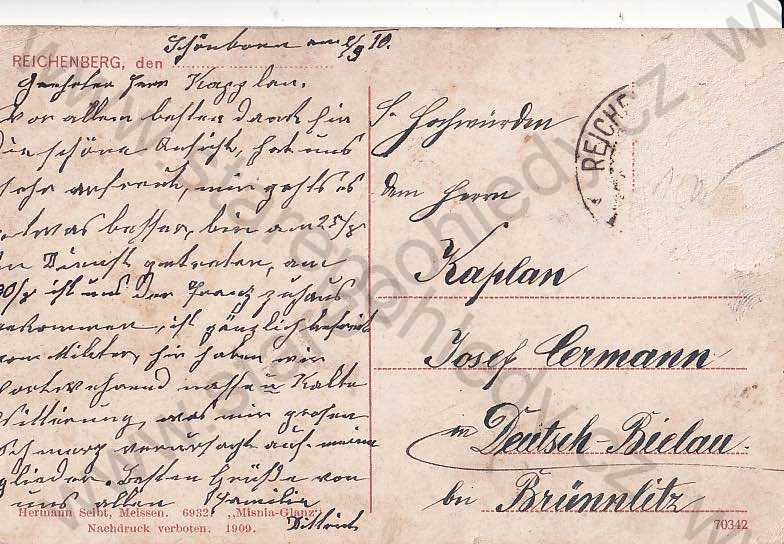 Schönborn am 2/9 10.
REICHENBERG, den
Geehrter Herr Kapplan.
Vor allem besten Dank für
die schöne Ansicht, hat uns
sehr erfreut, mir gehts es
etwas besser, bin am 25/8
in Dienst getreten, am
30/8 ist uns der Franz zuhaus
gekommen, ist gänzlich befreit
vom Militer, hir haben wir
fortwehrend nassen Kalte
Wittirung, was mir grosen
Schmerz verursagt auf meine
glieder. Besten Grüße von
uns allen Familie
Dittrich
Hermann Seibt, Meissen. 6932. „Misnia-Glanz“
Nachdruck verboten. 1909.
S. Hochwürden
dem Herrn
Kaplan
Josef Cermann
in Deutsch-Bielau
bei Brünnlitz
70342
REICHE
www.starepohledy.cz